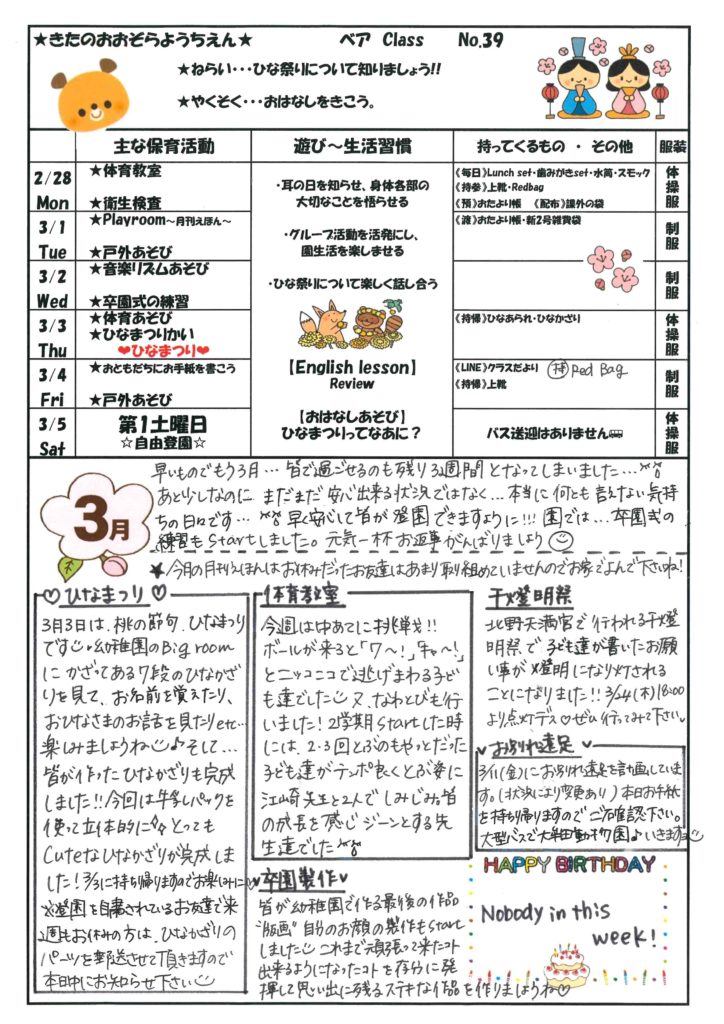 ★きたのおおぞらようちえん★ ベア Class No.39
★ねらい・・・ひな祭りについて知りましょう!!
★やくそく・・・おはなしをきこう。
主な保育活動 遊び～生活習慣 持ってくるもの ・ その他 服装
2/28 Mon
★体育教室
★衛生検査
3/1 Tue
★Playroom～月刊えほん～
★戸外あそび
3/2 Wed
★音楽リズムあそび
★卒園式の練習
3/3 Thu
★体育あそび
★ひなまつりかい
❤ひなまつり❤
3/4 Fri
★おともだちにお手紙を書こう
★戸外あそび
3/5 Sat
第1土曜日
☆自由登園☆
・耳の日を知らせ、身体各部の
大切なことを悟らせる
・グループ活動を活発にし、
園生活を楽しませる
・ひな祭りについて楽しく話し合う
【English lesson】
Review
【おはなしあそび】
ひなまつりってなあに？
《毎日》Lunch set・歯みがきset・水筒・スモック
《持参》上靴・Redbag
《預》おたより帳 《配布》課外の袋
《渡》おたより帳・新2号雑費袋
《持帰》ひなあられ・ひなかざり
《LINE》クラスだより 持 Red Bag
《持帰》上靴
バス送迎はありません
体操服
制服
制服
体操服
制服
体操服
3月
早いものでもう3月… 皆で過ごせるのも残り3週間となってしまいました…
あと少しなのに まだまだ安心出来る状況ではなく… 本当に何とも言えない気持
ちの日々です… 早く安心して皆が登園できますように!!! 園では… 卒園式の
練習もStartしました。元気一杯お返事がんばりましょう
★今月の月刊えほんはお休みだったお友達はあまり取り組めていませんのでお家でよんで下さいね!
♡ひなまつり♡
3月3日は、桃の節句、ひなまつり
です 幼稚園のBig room
にかざってある7段のひなかざ
りを見て、お名前を覚えたり、
おひなさまのお話を見たりetc…
楽しみましょうね♪そして…
皆が作ったひなかざりも完成
しました!!今回は牛乳パックを
使って立体的に とっても
Cuteなひなかざりが完成しまし
た!3/3に持ち帰りますのでお楽しみに
※登園を自粛されているお友達で来
週もお休みの方は、ひなかざりの
パーツを郵送させて頂きますので
本日中にお知らせ下さい
体育教室
今週は中あてに挑戦!!
ボールが来ると「ワ～!」「キャ～!」
とニッコニコで逃げまわる子ど
も達でした 又、なわとびも行
いました!2学期Startした時
には、2・3回とぶのもやっとだった
子ども達がテンポ良くとぶ姿に
江崎先生と2人でしみじみ皆
の成長を感じジーンとする先
生達でした
♥卒園製作♥
皆が幼稚園で作る最後の作品
"版画"自分のお顔の製作もStart
しました これまで頑張って来たコト
出来るようになったコトを存分に発
揮して思い出に残るステキな作品を作りましょうね♡
千燈明祭
北野天満宮で行われる千燈
明祭で子ども達が書いたお願
い事が燈明になり灯される
ことになりました!!3/24(木)18:00
より点灯デス♡ぜひ行ってみて下さい
♥お別れ遠足♥
3/11(金)にお別れ遠足を計画していま
す。(状況により変更あり)本日お手紙
を持ち帰りますのでご確認下さい。
大型バスで大牟田動物園♪いきます
HAPPY BIRTHDAY
Nobody in this
week!